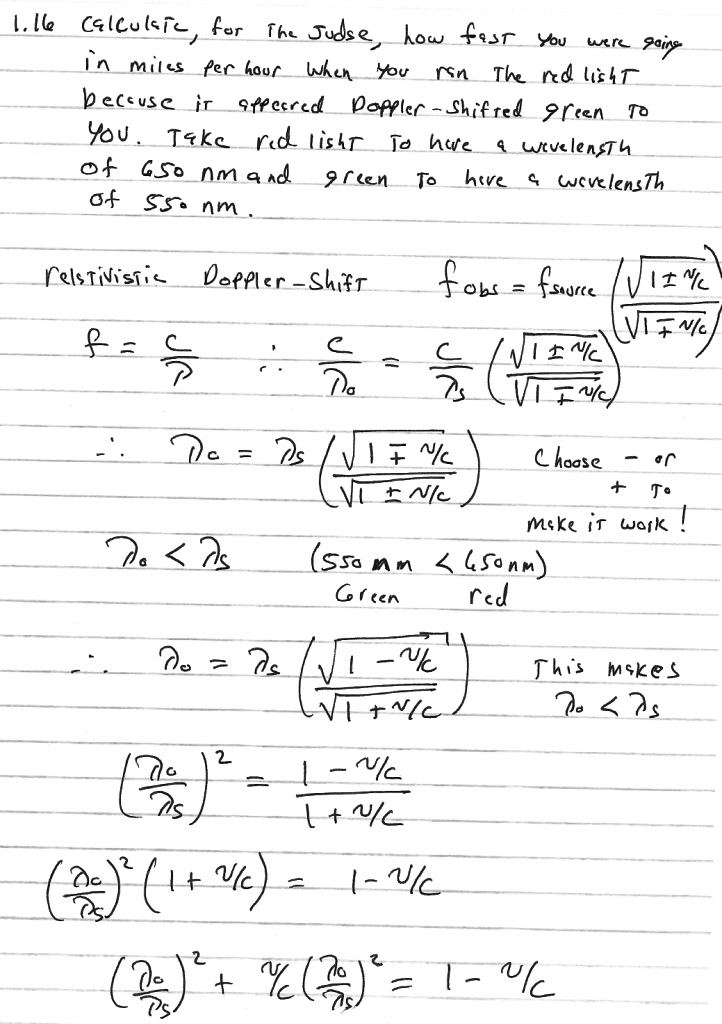 1.16 Calculate, for the Judge, how fast you were going
in miles per hour when you ran the red light
because it appeared Doppler-Shifted green to
you. Take red light to have a wavelength
of 650 nm and green to have a wavelength
of 550 nm.
relativistic Doppler-Shift f obs = f source (√(1 ± v/c) / √(1 ∓ v/c))
f = c/λ ∴ c/λo = c/λs (√(1 ± v/c) / √(1 ∓ v/c))
∴ λo = λs (√(1 ∓ v/c) / √(1 ± v/c)) Choose - or
+ to
make it work!
λo < λs (550 nm < 650 nm)
Green red
∴ λo = λs (√(1 - v/c) / √(1 + v/c)) This makes
λo < λs
(λo/λs)² = (1 - v/c) / (1 + v/c)
(λo/λs)² (1 + v/c) = 1 - v/c
(λo/λs)² + v/c (λo/λs)² = 1 - v/c